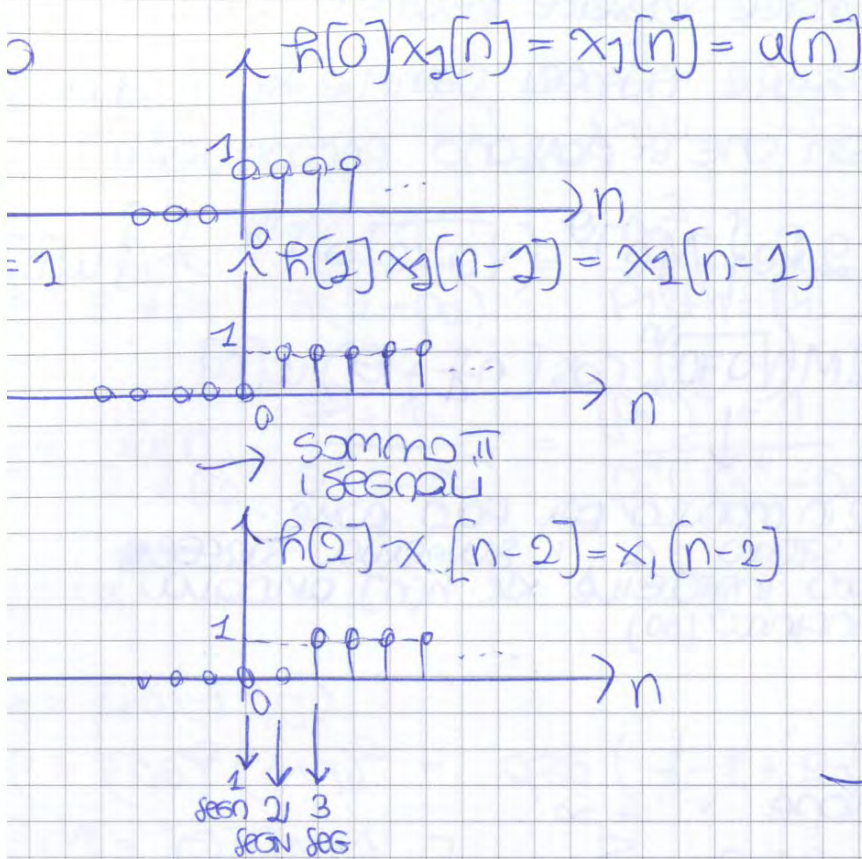 h[0]x1[n] = x1[n] = u[n]
1
...
n
0
= 1
h[1]x1[n-1] = x1[n-1]
1
...
n
0
→ SOMMO
I SEGNALI
h[2]x[n-2] = x1[n-2]
1
....
n
0
1 2 3
SEGN SEGN SEG